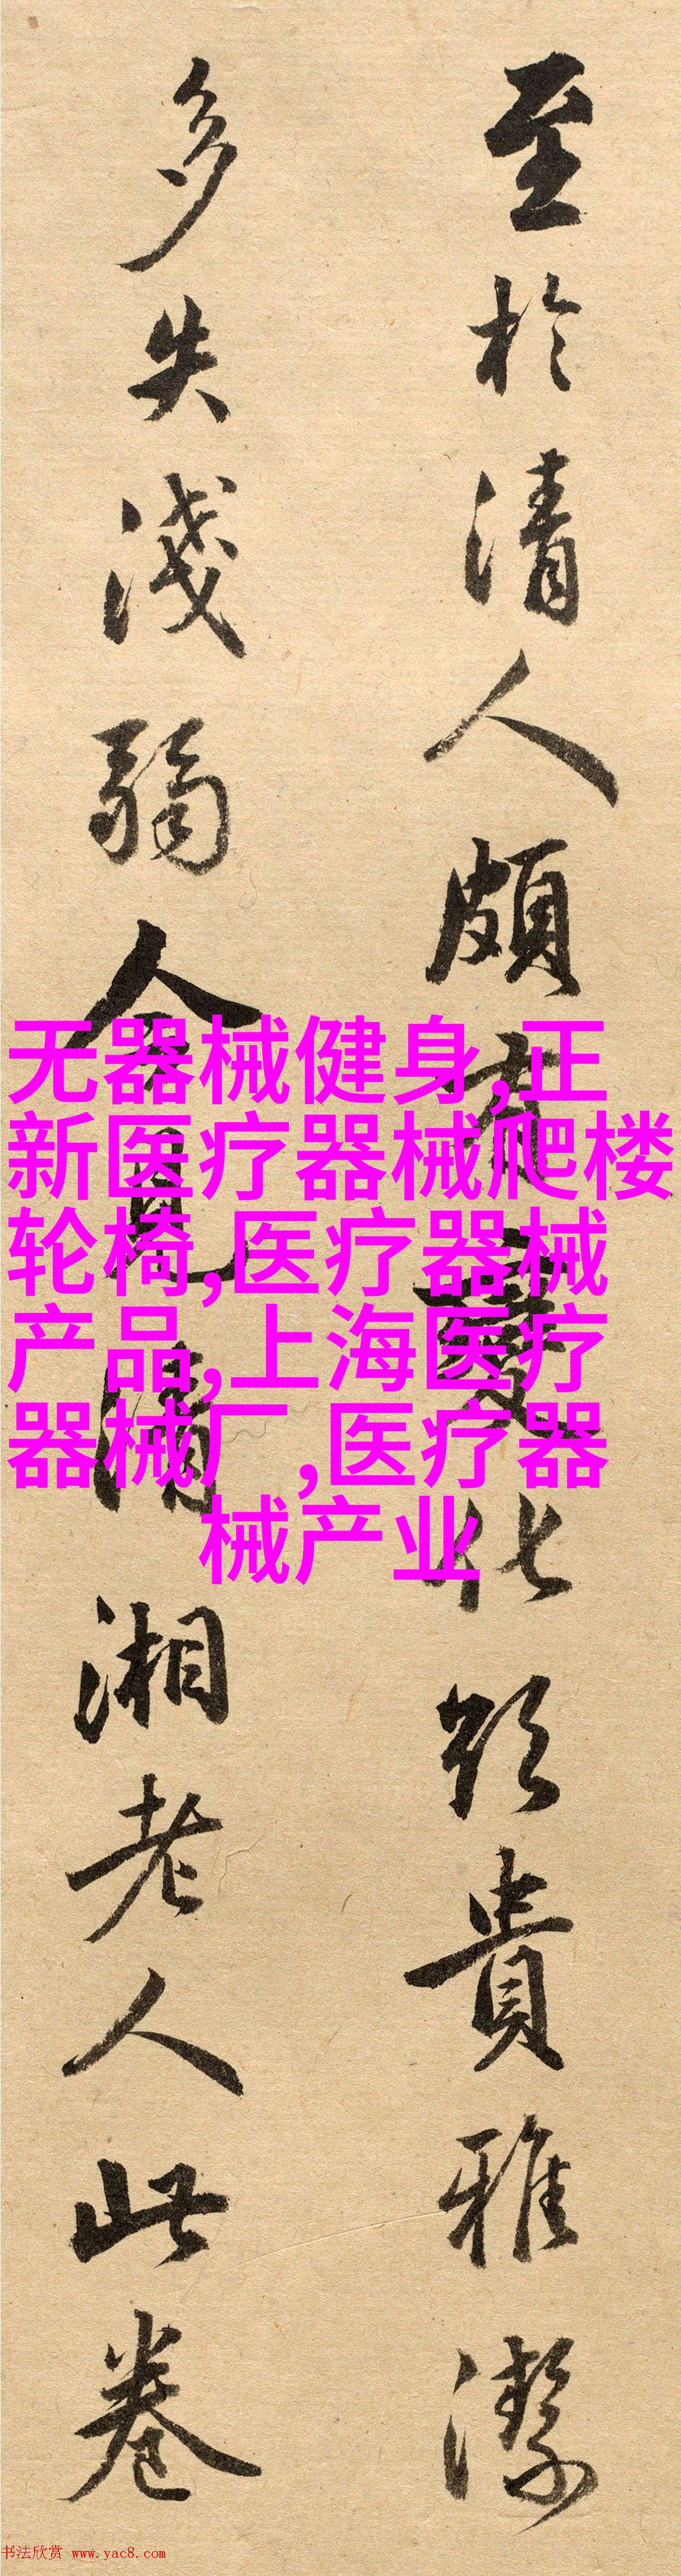 至於清人頗有變化貴雅潔
多失淺弱今見清湘老人此卷
无器械健身,正
新医疗器械爬楼
轮椅,医疗器械
产品,上海医疗
器械厂,医疗器
械产业
书法欣赏 www.yac8.com